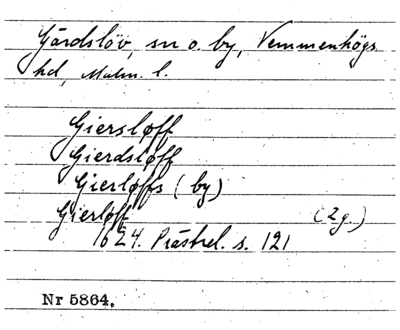 Gärdslöv, sn o. by, Vemmenhögs
hd, Malm. l.
Giersløff
Gierdsløff
Gierløffs (by)
Gierløff (2g.)
1624. Prästrel. s. 121
Nr 5864.